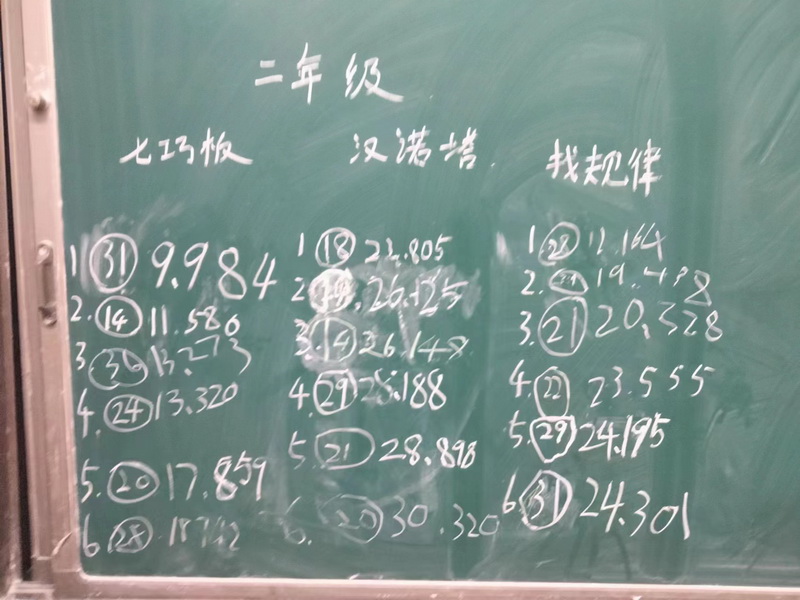 二年级
七巧板
1 31 9.984
2. 14 11.580
3 13.273
4. 24 13.320
5. 20 17.859
6 28
汉诺塔.
1 18 23.805
2
3. 14 26.148
4. 29 188
5. 21 28.898
6. 20 30.320
找规律
1 28 164
2. 19.438
3. 21 20.328
4. 22 23.555
5. 29 24.195
6 31 24.301